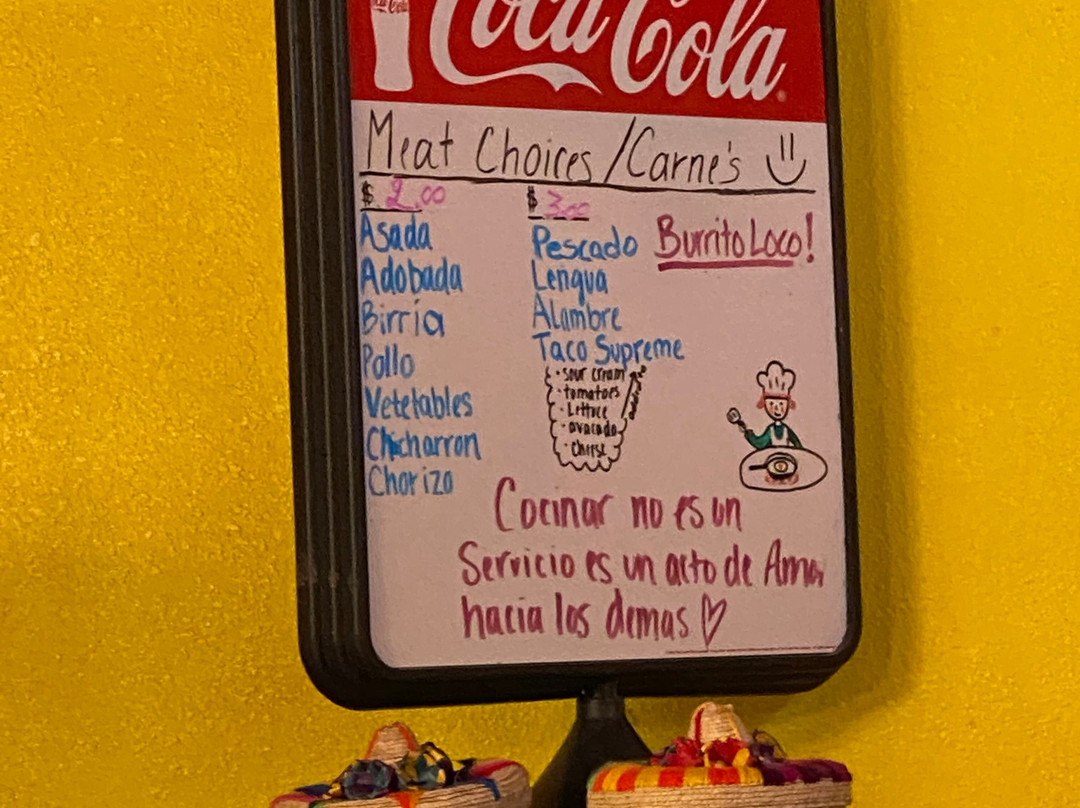 Coca-Cola
Meat Choices / Carne's
$ 2.00
Asada
Adobada
Birria
Pollo
Vetetables
Chicharron
Chorizo
$ 3.00
Pescado
Lengua
Alambre
Taco Supreme
· sour cream
· tomatoes
· Lettuce
· avocado
· cheese
Burrito Loco!
Cocinar no es un
Servicio es un acto de Amor
hacia los demas